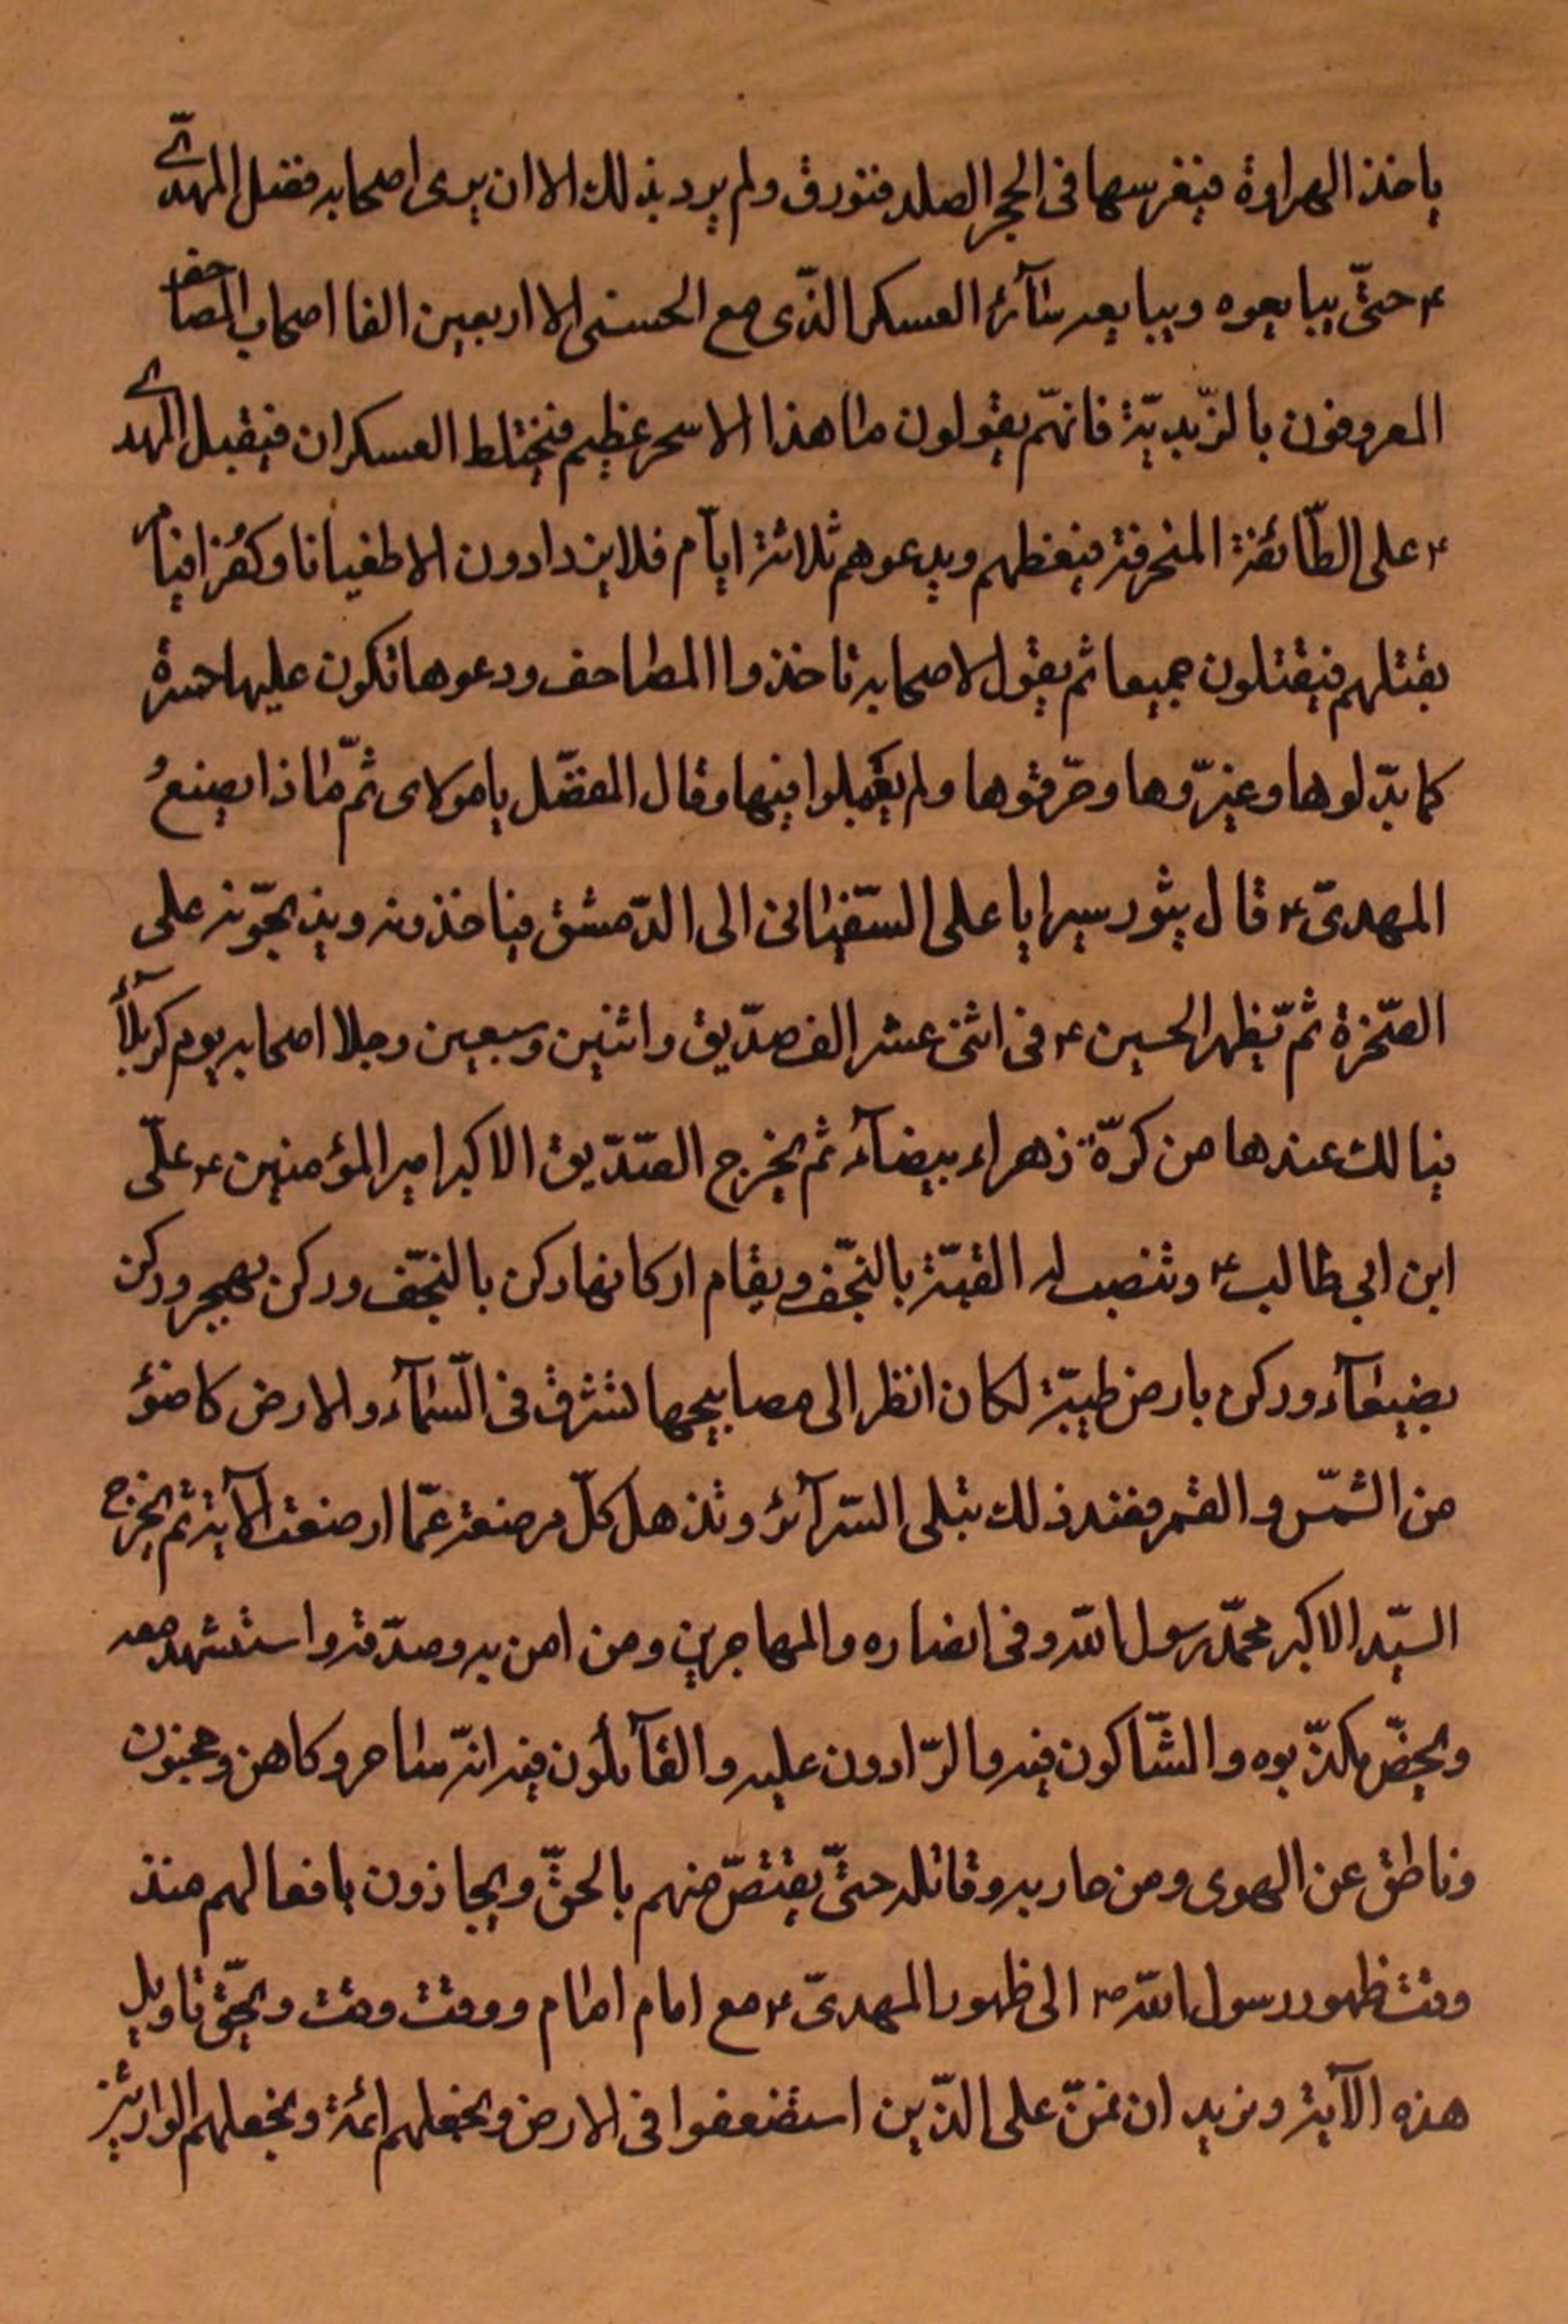 ياخذ الهراوة فيغرسها فى الحجر الصلد فتورق ولم يرد بذلك الا ان يرى اصحابه فضل المهدىّ
ع حتّى يبايعوه ويبايعه سآئر العسكر الذّى مع الحسنى الا اربعين الفا اصحاب المصاحف
المعروفون بالزّيديّة فانهّم يقولون ما هذا الا سحر عظيم فيختلط العسكران فيقبل المهدى
ع على الطّائفة المنحرفة فيعظهم ويدعوهم ثلاثة ايآم فلا يزدادون الا طغيانا وكفرا فيامر
بقتلهم فيقتلون جميعا ثم يقول لاصحابه تاخذوا المصاحف ودعوها تكون عليها حسرة
كما بدّلوها وغيّروها وحرّفوها ولم يعملوا فيها وقال المفضّل يا مولاى ثمّ ماذا يصنعُ
المهدىّ ع قال يثور سيرايا على السّفيانى الى الدّمشق فياخذونه ويذبحوّنه على
الصّخرة ثم ّيظهر الحسين ع فى اثنى عشر الف صدّيق واثنين وسبعين رجلا اصحابه يوم كربلآء
فيالك عندها من كرّة زهراء بيضآء ثم يخرج الصّدّيق الاكبر امير المؤمنين ع علىّ
ابن ابي طالب ع وتنصب له القبّة بالنجّف ويقام اركانها ركن بالنجّف وركن بهجر وركن
بضيعآء وركن بارض طيبّة لكان انظر الى مصابيحها تشرق فى السّمآء والارض كاضوُ
من الشمّس والقمر فعند ذلك تبلى السّرآئر وتذهل كلّ مرضعة عمّا ارضعت الآية ثم يخرج
السيّد الاكبر محمّد رسول اللّه وفى انصاره والمهاجرين ومن امن به وصدّقه واستشهد معه
ويحضّر مكذّبوه والشّاكون فيه والرّادون عليه والقآئلون فيه انّه ساحر وكاهن ومجنون
وناطق عن الهوى ومن حاربه وقاتله حتىّ يقتصّ منهم بالحقّ ويجازون بافعالهم منذ
وقت ظهور رسول اللّه ص الى ظهور المهدىّ ع مع امام امام ووقت وقت ويحقّ تاويل
هذه الآية ونريد ان نمنّ على الذّين استضعفوا فى الارض ونجعلهم ائمة ونجعلهم الوارثين